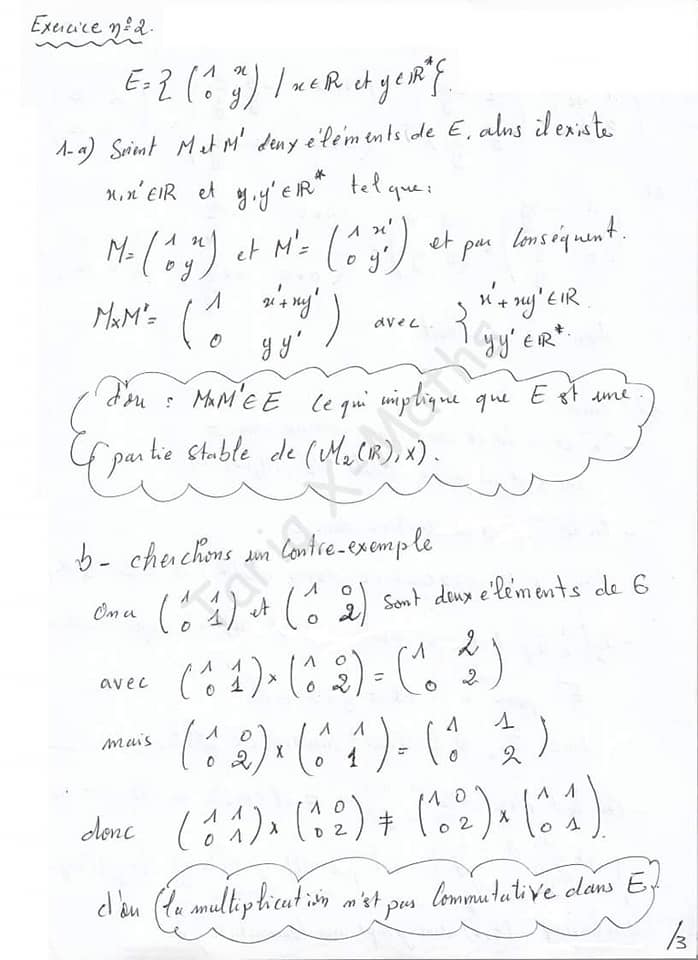 Exercice n°2.
E = { ( 1 x ; 0 y ) / x ∈ ℝ et y ∈ ℝ* }.
1-a) Soient M et M' deux éléments de E, alors il existe
x, x' ∈ ℝ et y, y' ∈ ℝ* tel que :
M = ( 1 x ; 0 y ) et M' = ( 1 x' ; 0 y' ) et par conséquent.
M×M' = ( 1 x'+xy' ; 0 yy' ) avec { x'+xy' ∈ ℝ ; yy' ∈ ℝ*.
d'où : M×M' ∈ E ce qui implique que E est une
partie stable de (M₂(ℝ), ×).
b - cherchons un contre-exemple
On a ( 1 1 ; 0 1 ) et ( 1 0 ; 0 2 ) sont deux éléments de G
avec ( 1 1 ; 0 1 ) × ( 1 0 ; 0 2 ) = ( 1 2 ; 0 2 )
mais ( 1 0 ; 0 2 ) × ( 1 1 ; 0 1 ) = ( 1 1 ; 0 2 )
donc ( 1 1 ; 0 1 ) × ( 1 0 ; 0 2 ) ≠ ( 1 0 ; 0 2 ) × ( 1 1 ; 0 1 ).
d'où la multiplication n'est pas commutative dans E.
/3
Tariq X-Maths